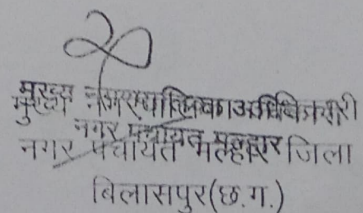 मुख्य नगरपालिका अधिकारी
नगर पंचायत मल्हार
नगर पंचायत मल्हार जिला
बिलासपुर (छ.ग.)